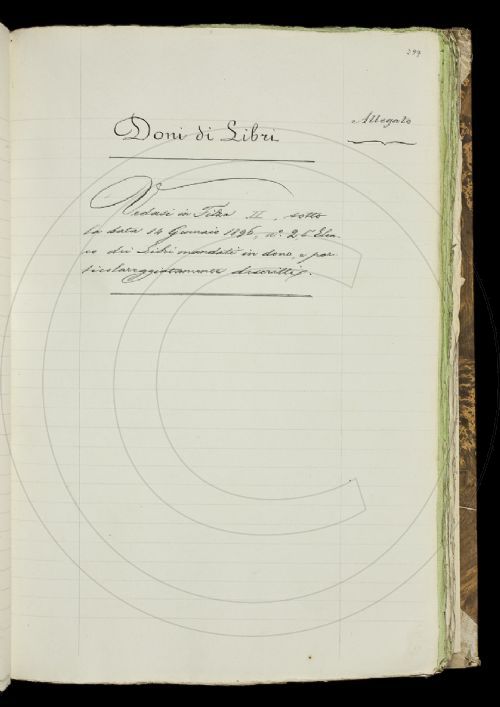 299
Allegato
Doni di Libri
Vedasi in Filza II, sotto
la data 14 Gennaio 1896, n°. 2, l'Elen-
co dei Libri mandati in dono, e par-
ticolareggiatamente descritti.